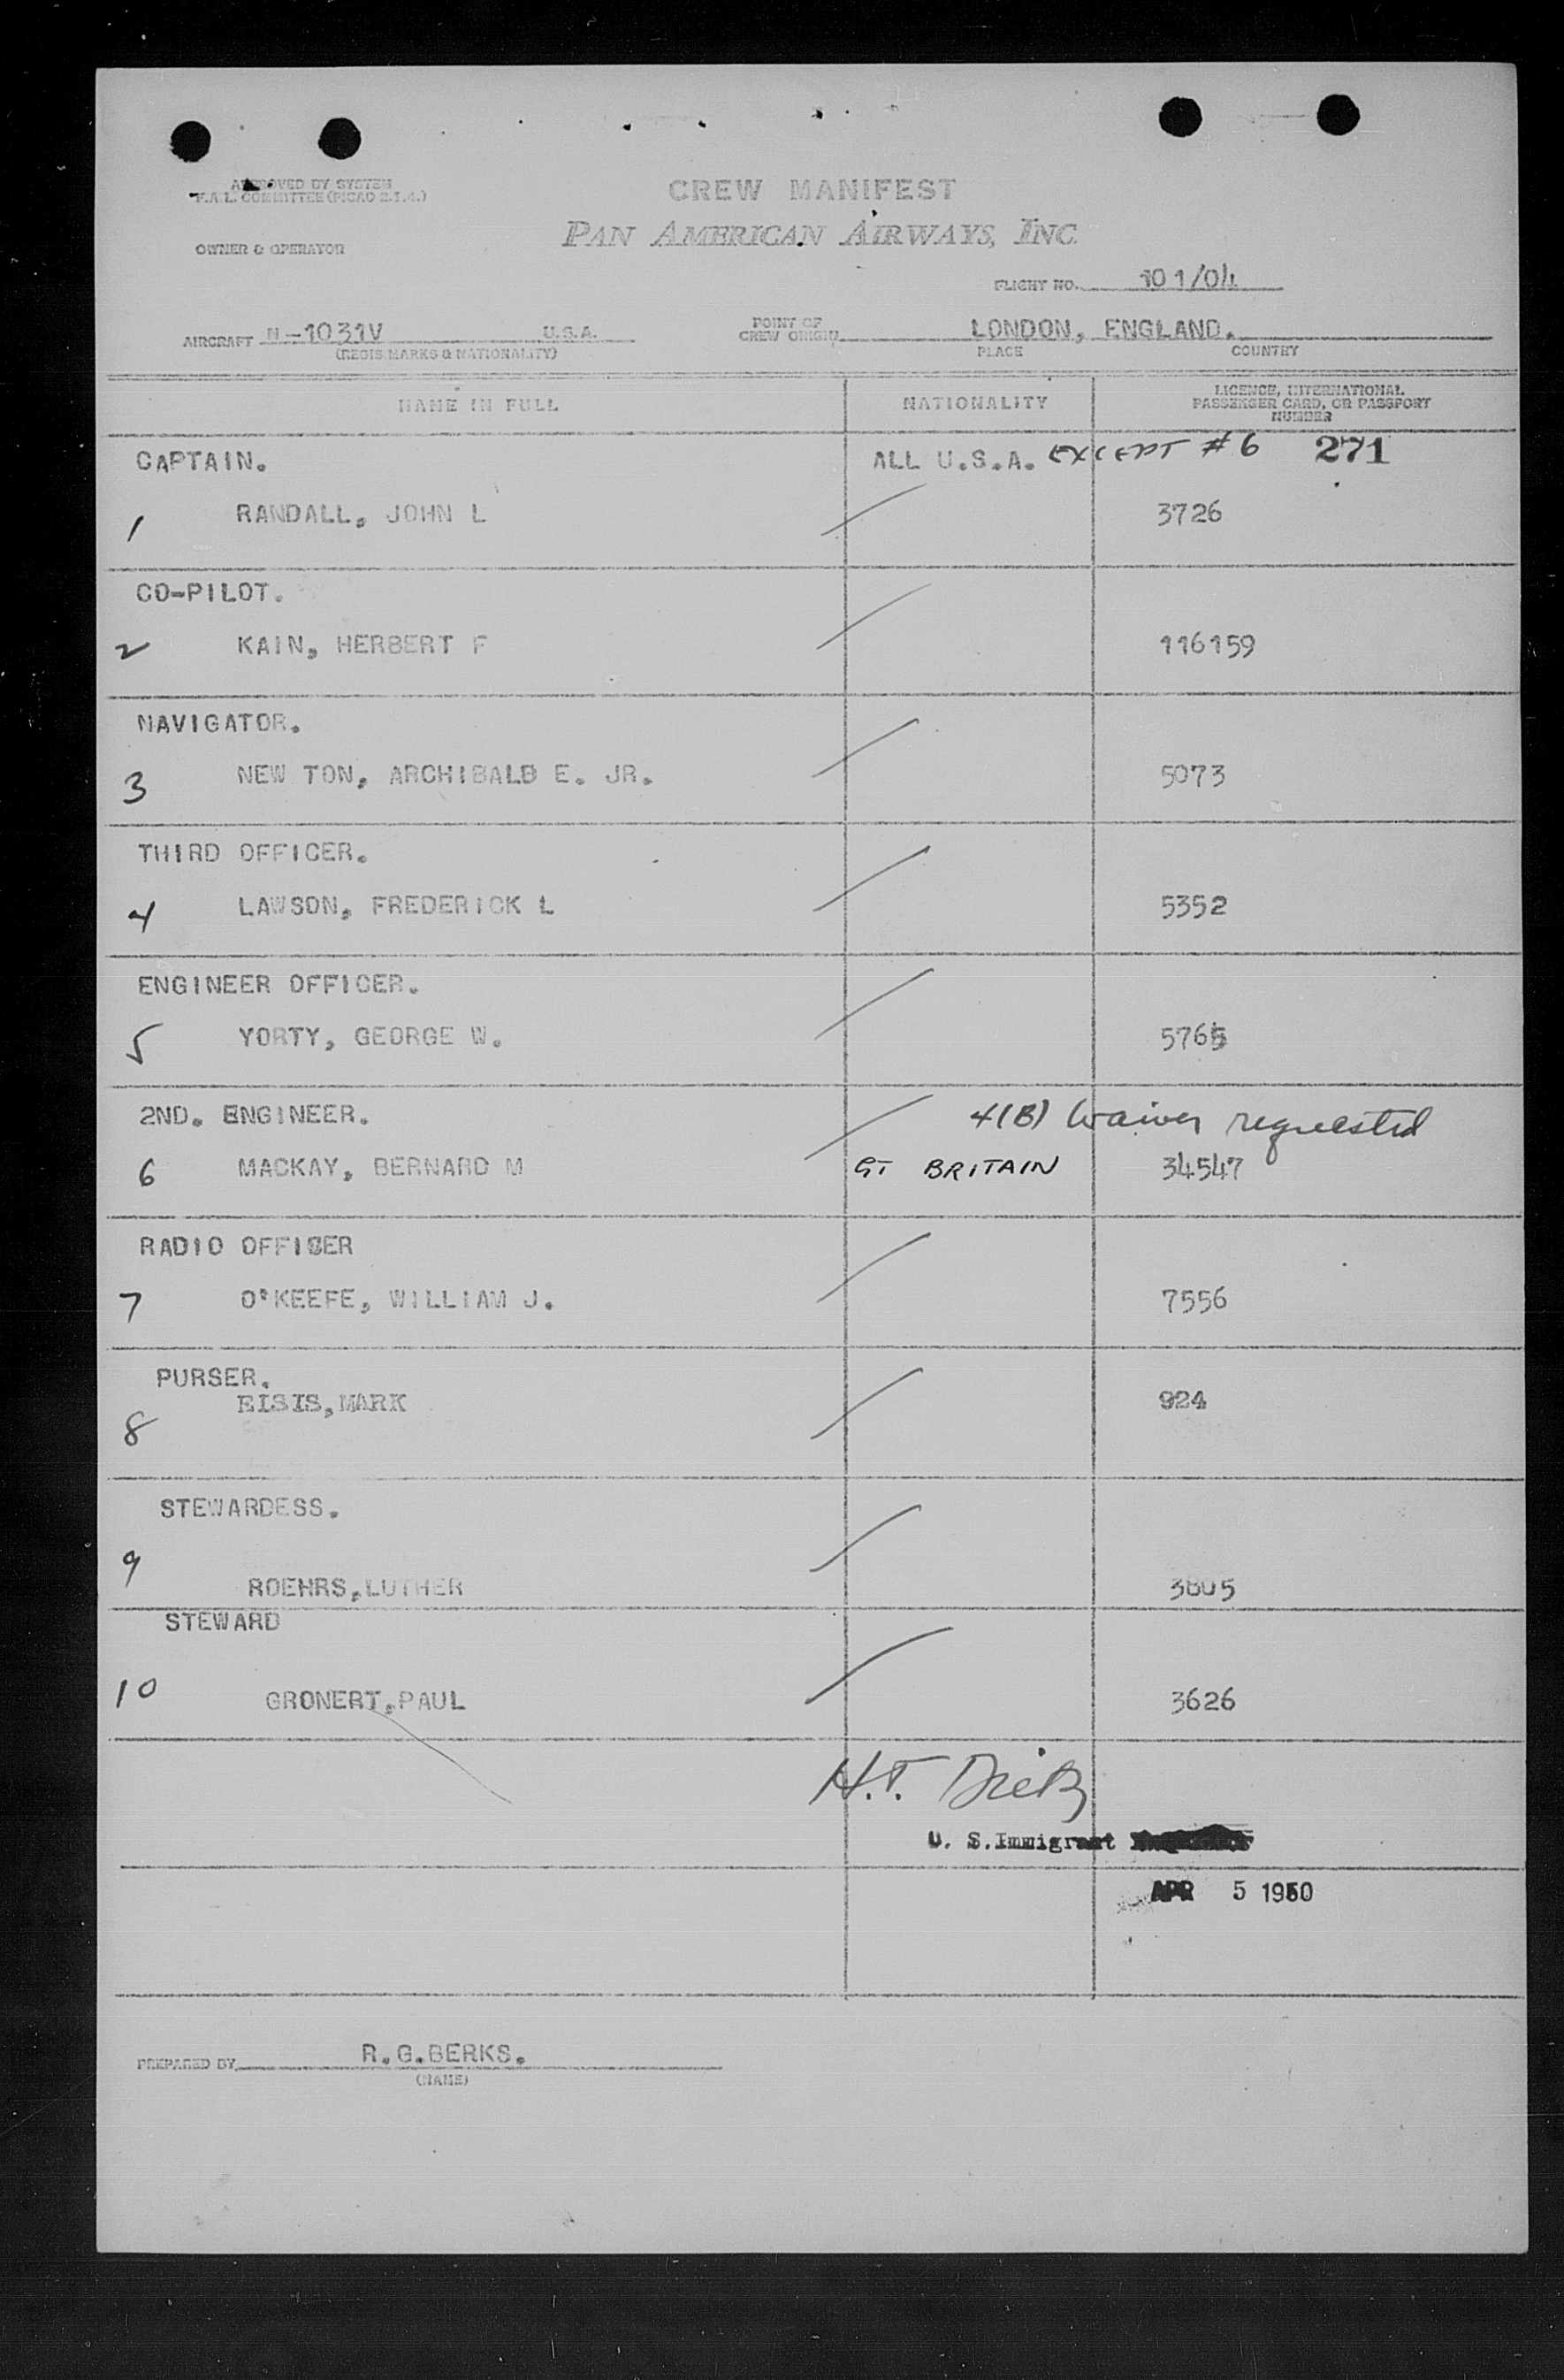 APPROVED BY SYSTEM
F.A.L. COMMITTEE (PICAO 2.1.4.)
CREW MANIFEST
PAN AMERICAN AIRWAYS, INC.
OWNER & OPERATOR
FLIGHT NO. 101/04
AIRCRAFT N-1031V U.S.A. POINT OF CREW ORIGIN LONDON, ENGLAND.
(REGIS MARKS & NATIONALITY) PLACE COUNTRY
NAME IN FULL NATIONALITY LICENCE, INTERNATIONAL PASSENGER CARD, OR PASSPORT NUMBER
CAPTAIN. ALL U.S.A. EXCEPT #6 271
1 RANDALL, JOHN L 3726
CO-PILOT.
2 KAIN, HERBERT F 116159
NAVIGATOR.
3 NEW TON, ARCHIBALD E. JR. 5073
THIRD OFFICER.
4 LAWSON, FREDERICK L 5352
ENGINEER OFFICER.
5 YORTY, GEORGE W. 5765
2ND. ENGINEER. 4(B) Waiver requested
6 MACKAY, BERNARD M GT BRITAIN 34547
RADIO OFFICER
7 O'KEEFE, WILLIAM J. 7556
PURSER.
8 EISIS,MARK 924
STEWARDESS.
9 ROEHRS,LUTHER 3805
STEWARD
10 GRONERT,PAUL 3626
H.T. Dietz
U. S. Immigrant
APR 5 1950
PREPARED BY R.G.BERKS.
(NAME)